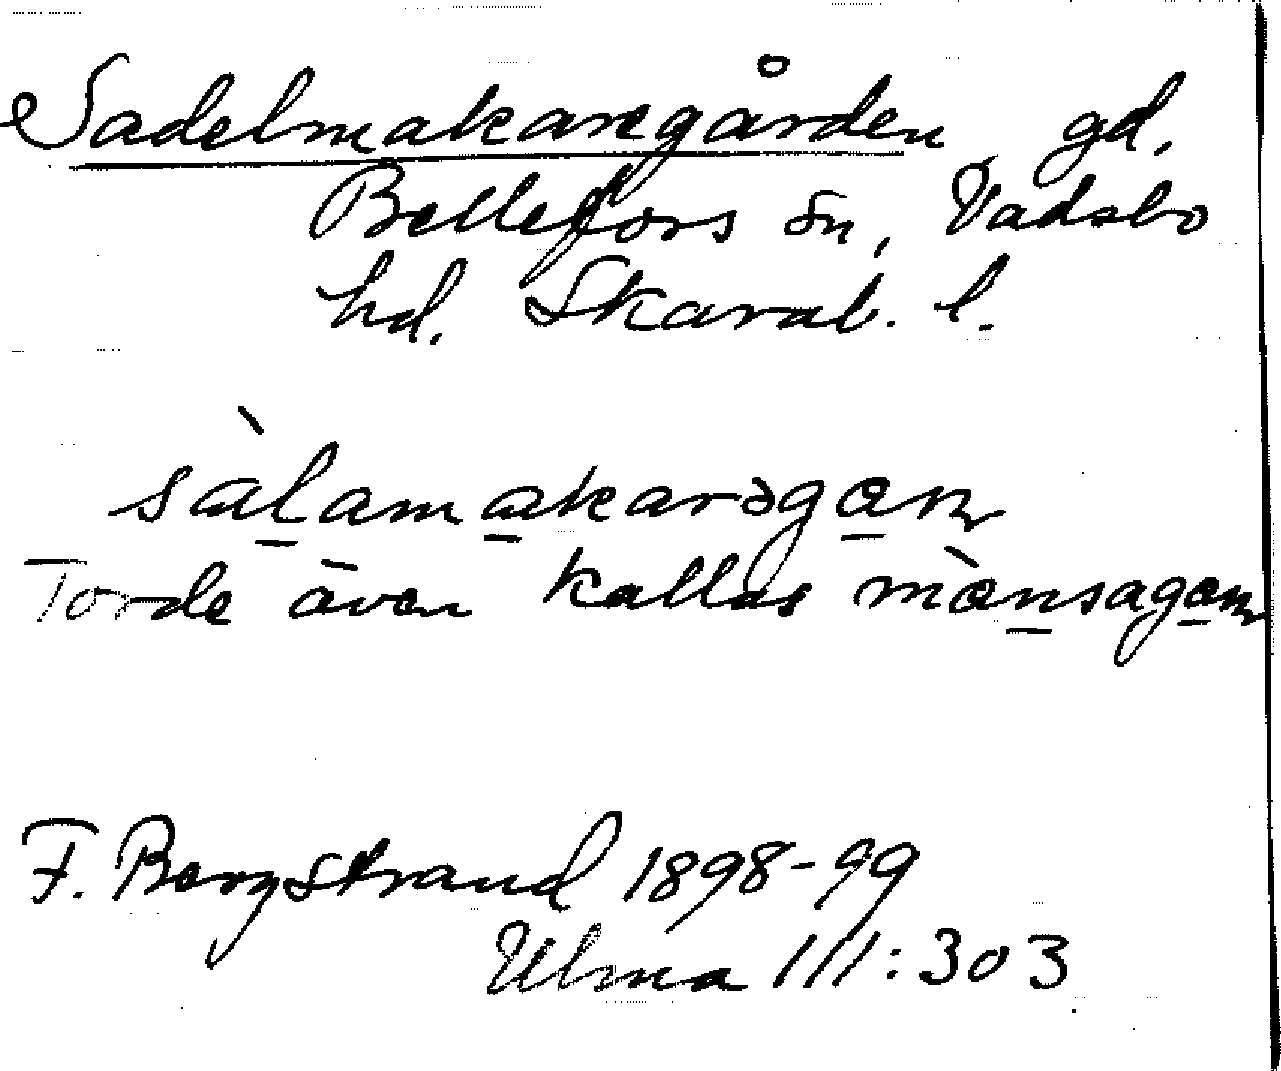 Sadelmakaregården gd.
Bellefors sn, Vadsbo
hd. Skarab. l.
sàlamakarəgaɳ
Torde även kallas mànsagaɳ
F. Bergstrand 1898-99
Ulma 111:303